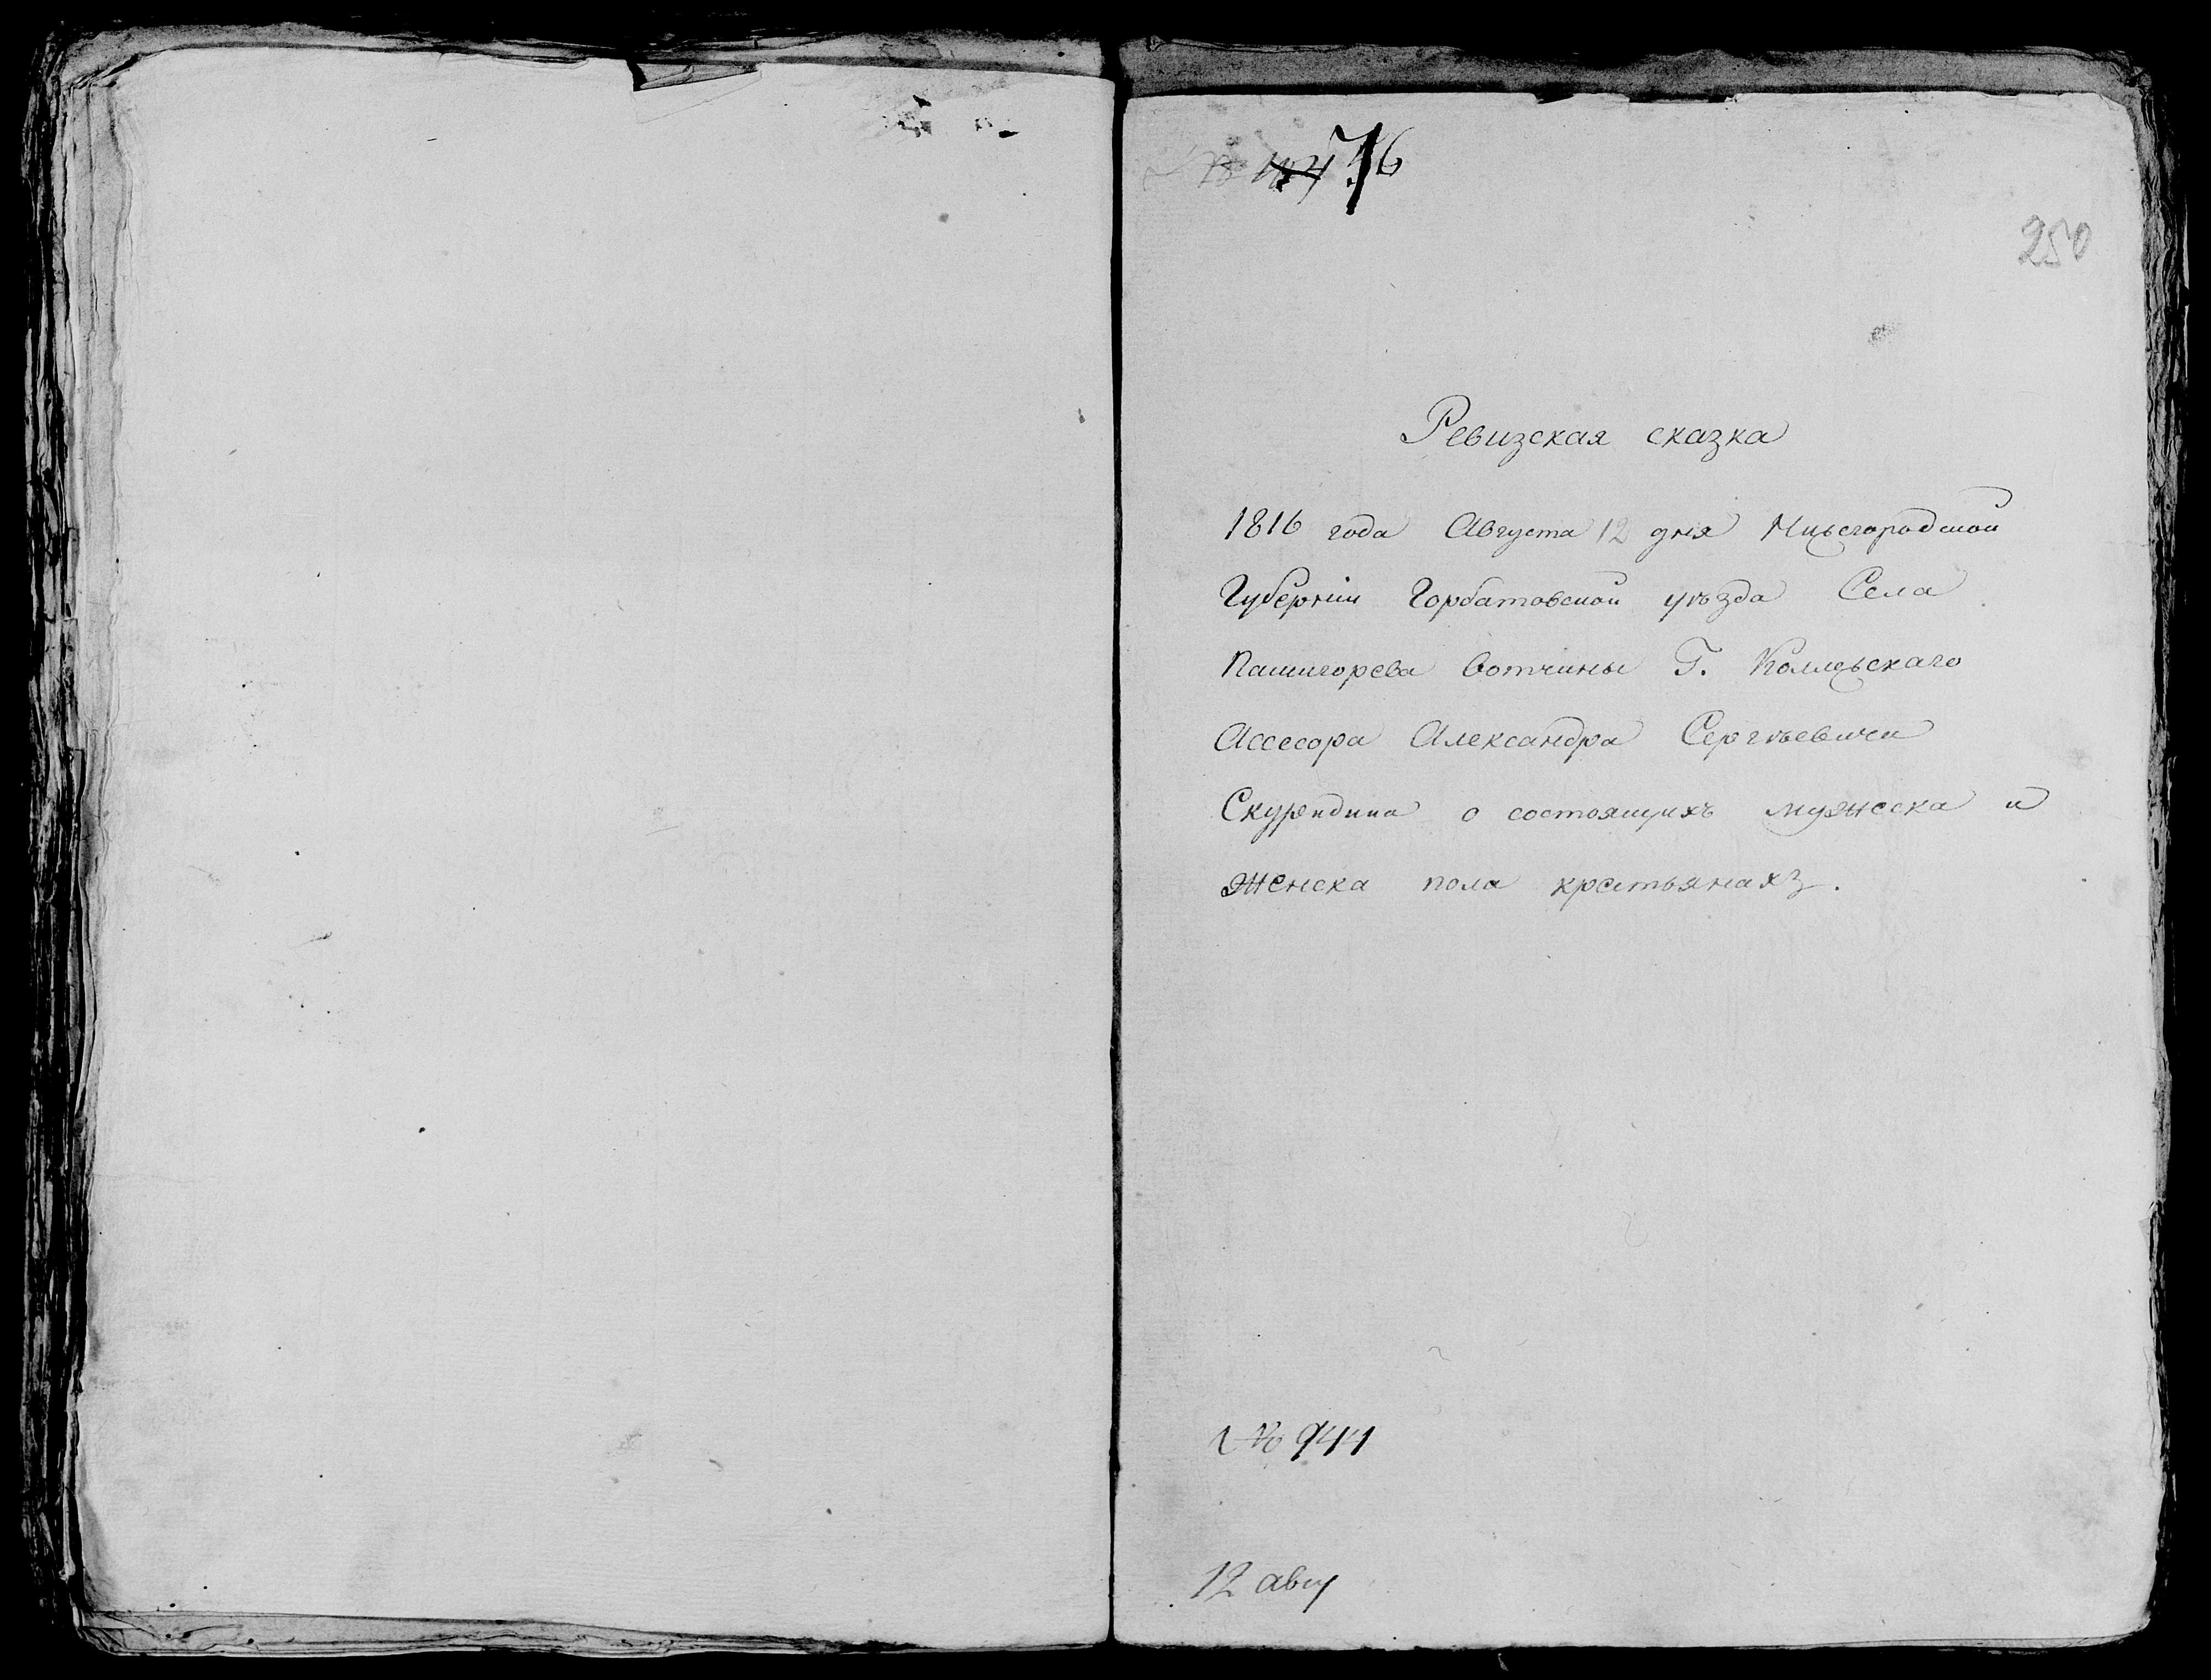 250
Ревизская сказка
1816 года Августа 12 дня Нижегородской
Губернiи Горбатовской уѣзда Села
Пашигорева вотчины Г. Коллежскаго
Ассесора Александра Сергѣевича
Скурядина о состоящихъ мужеска и
женска пола крестьянахъ.
№ 944
12 авгу